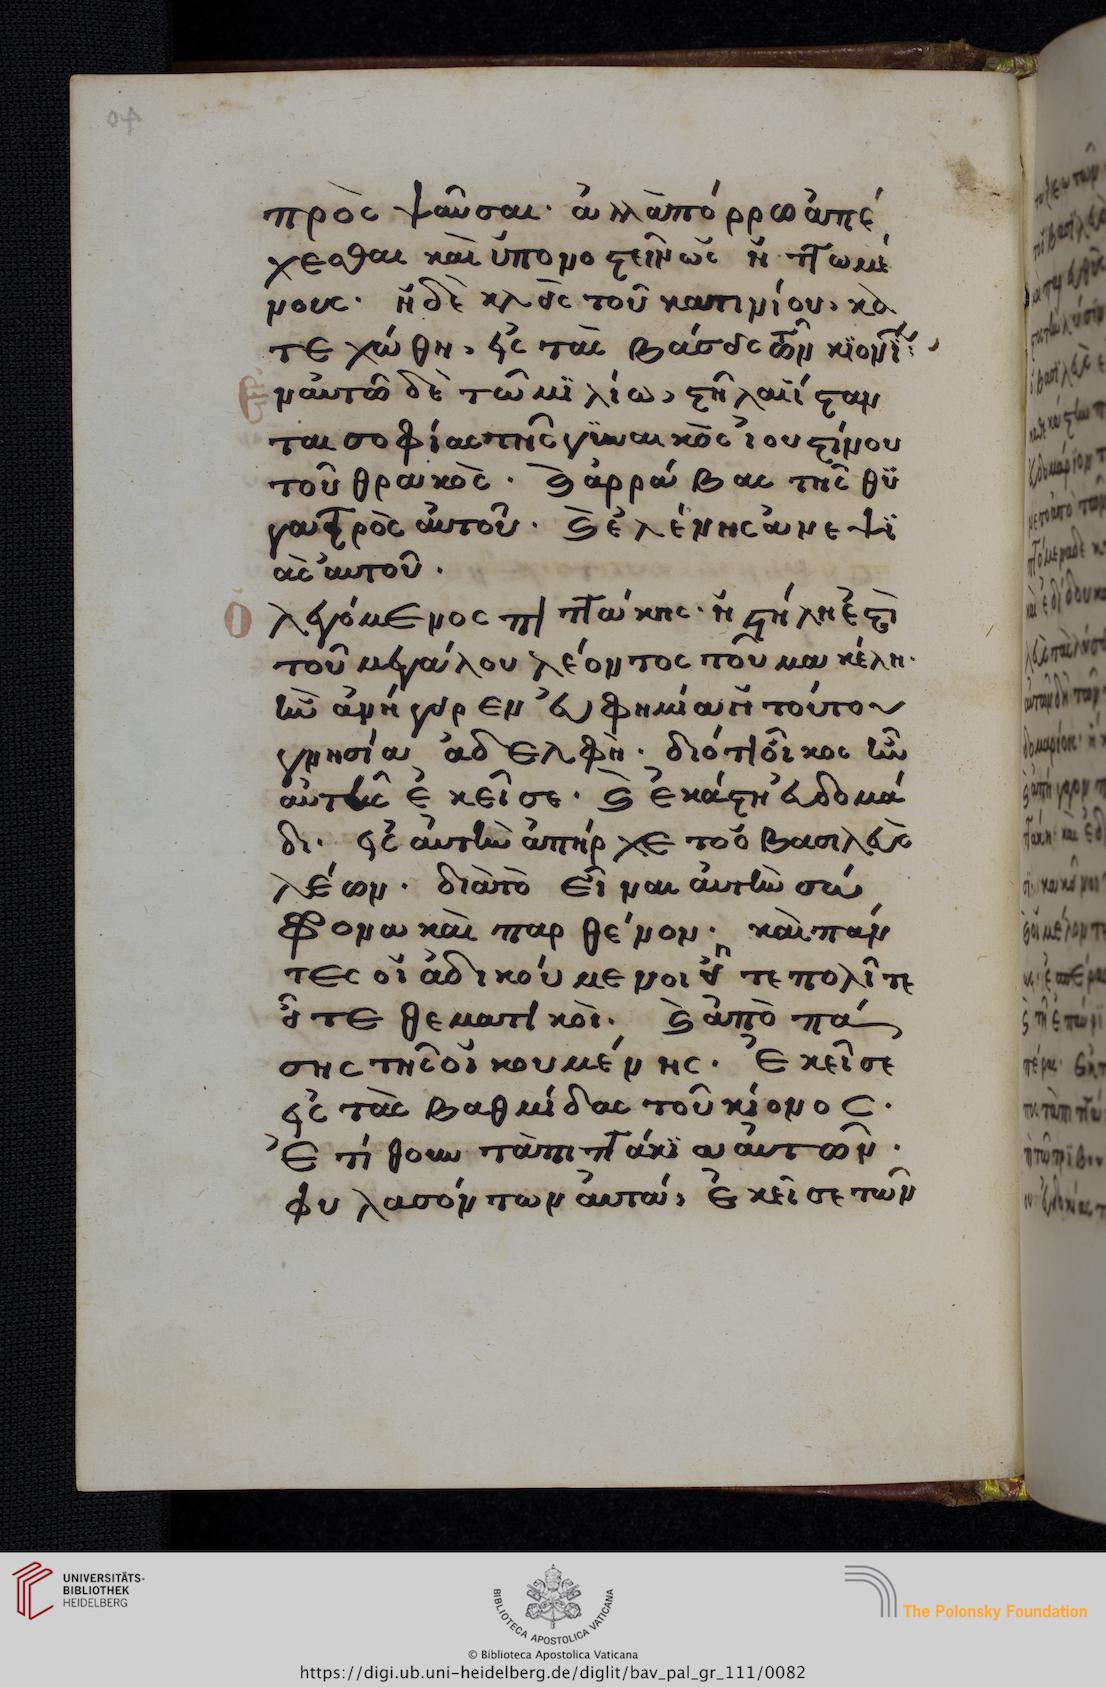 40
πρὸς ψαῦσαι· ἀλλἀπόρρω ἀπέ
χεσθαι καὶ ὑπομοστεῖν ὡς ἢ πτωμέ
νους· ἡ δὲ κλεὶς τοῦ καπιμίου, κα
τεχώθη, εἰς τὰς βάσεις τῶν κϊον
ἐν αὐτῶ δὲ τῶ μϊλίω, στῆλαι ΐσταν
ται σοφίας τῆς γϋναικὸς ἰουστίνου
τοῦ θρακὸς· καὶ ἀρράβας τῆς θϋ
γατρὸς αὐτοῦ· καὶ ἐλένης ἀνεψϊ
ᾶς αὐτοῦ·
ὁ
λεγόμενος πιττάκης· ἡ στήλη ἐστὶ
τοῦ μεγάλου λέοντος τοῦ μακέλη·
ἣν ἀνήγειρεν εὐφημία ἡ τούτου
γνησία ἀδελφὴ· διότι οἶκος ἦν
αὐτῆς ἐκεῖσε· καὶ ἑκάστη ἑβδομά
δι· εἰς αὐτὴν ἀπήρχετο ὁ βασιλεὺς
λέων· διὰ τὸ εἶναι αὐτὴν σώ
φρονα καὶ παρθένον· καὶ πάν
τες οἱ ἀδικούμενοι εἴτε πολῖτε
εἴτε θεματικοὶ· καὶ ἀπὸ πά
σης τῆς οἰκουμένης· ἐκεῖσε
εἰς τὰς βαθμίδας τοῦ κίονος·
ἐτίθουν τὰ πιττάκϊα αὐτῶν·
φυλασόντων αὐτά, ἐκεῖσε τῶν
UNIVERSITÄTS-
BIBLIOTHEK
HEIDELBERG
BIBLIOTECA APOSTOLICA VATICANA
The Polonsky Foundation
© Biblioteca Apostolica Vaticana
https://digi.ub.uni-heidelberg.de/diglit/bav_pal_gr_111/0082